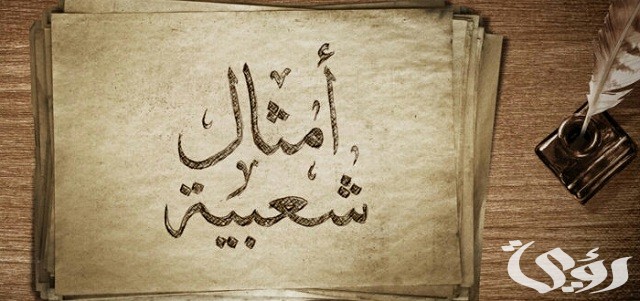 أمثال
شعبية
رؤية